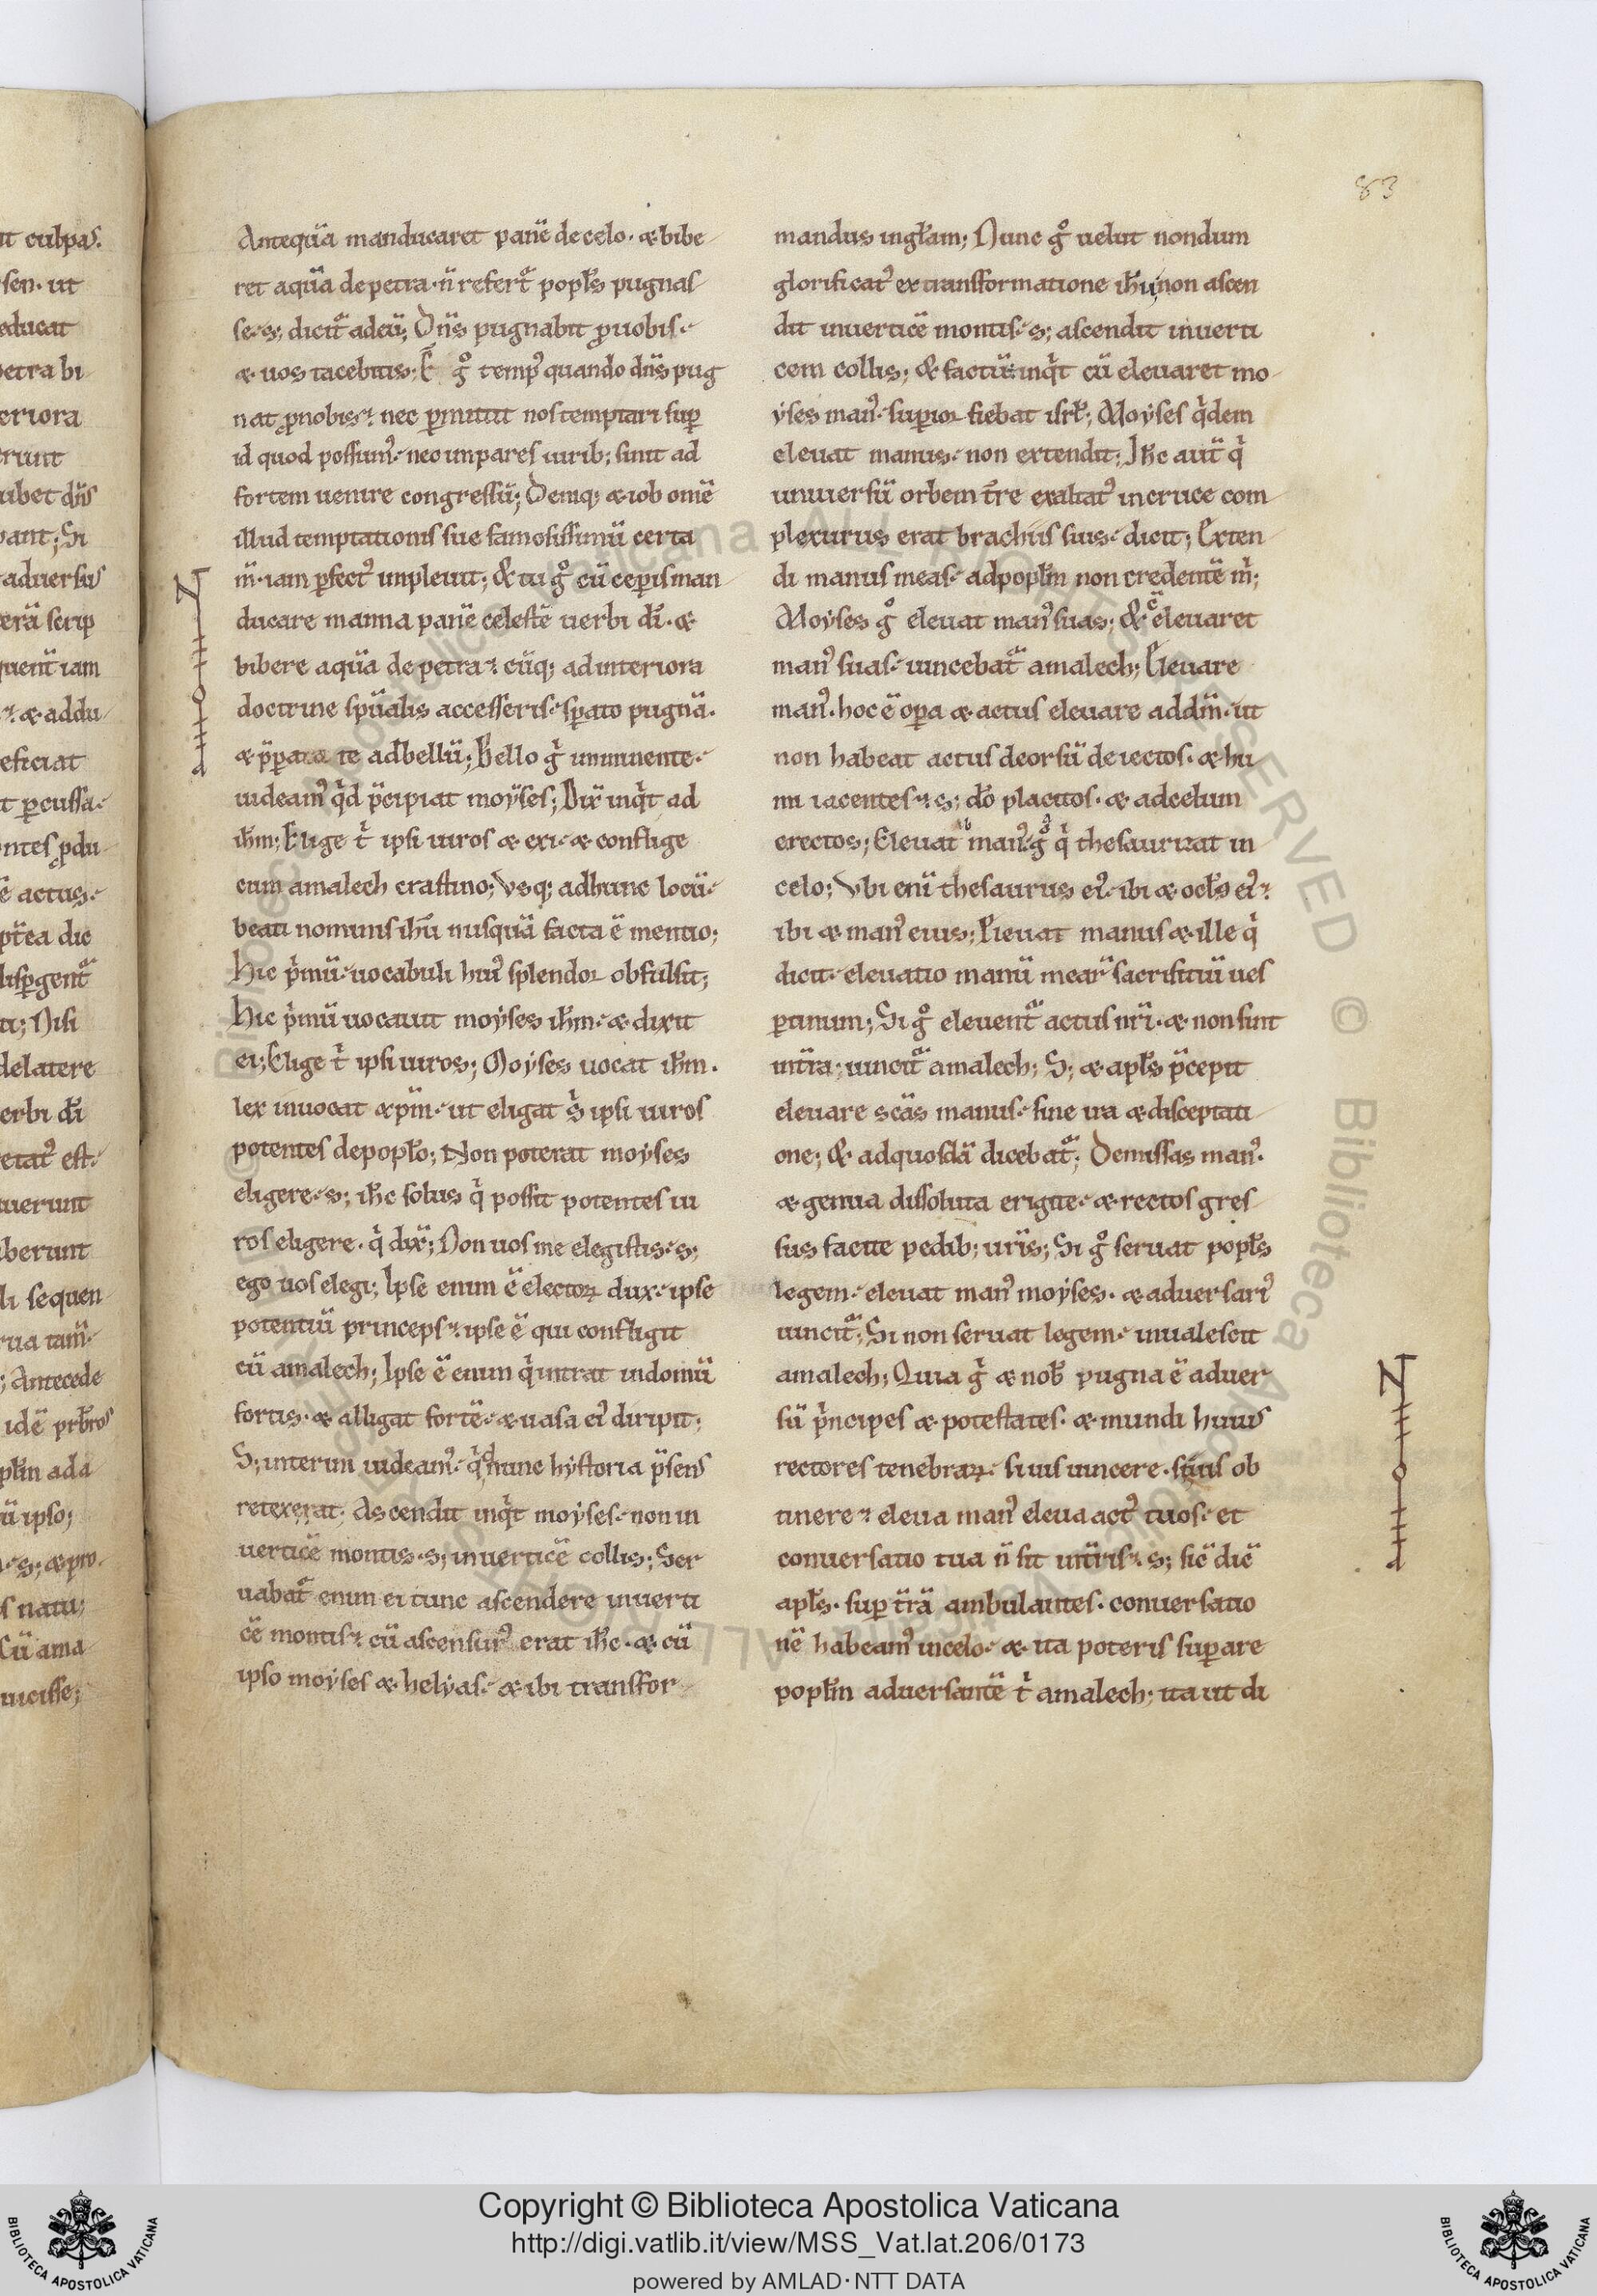 83
ıt culpas.
sen. ut
educat
petra bi
eriora
erunt
iubet dn̅s
bant; Si
aduersus
erā scrip
quent̅ iam
⁊ æ addu
eficiat
t ꝑcussa
ontes ꝓdu
ē actus.
pt̅ea dic
lisꝑgent᷑
ti; Nisi
delatere
erbi dı̅
etatꝰ est.
uuerunt
iberunt
li sequen
rua tam̅.
; Antecede
idē prb̅ros
pl̅m ada
ū ipso;
s; æ pro
s natu;
cū ama
uicisse;
Antequā manducaret panē de celo. æ bibe
ret aquā de petra. n̅ refert᷑ popl̅s pugnas
se. s; dicit᷑ ad eū; Dn̅s pugnabit ꝓ uobis.
æ uos tacebitis; E gͦ tempꝰ quando dn̅s pug
nat ꝓ nobis. nec ꝑmittit nos temptari suꝑ
id quod possumꝰ. nec inpares uirib; sinit ad
fortem uenire congressū; Deniq; æ iob omē
illud temptationis sue famosissimū certa
m̅. iam ꝑfectꝰ inpleuit; & tu gͦ cū ceꝑis man
ducare manna panē celestē uerbi dı̅. æ
bibere aquā de petra. cūq; ad interiora
doctrine spu̅alis accesseris. sꝑato pugnā.
æ p̅ꝑata te ad bellū; Bello gͥ imminente.
uideamꝰ qͥd p̅cipiat moyses; Dix̅ inqͥt ad
ih̅m; Elige tͥ ipsi uiros æ exi. æ conflige
cum amalech crastino; Vsq; ad hunc locū.
beati nominis ih̅u nusquā facta ē mentio;
Hic pͥmū. uocabuli huiꝰ splendor obfulsit;
Hic pͥmū uocauit moyses ih̅m. æ dixit
ei; Elige tͥ ipsi uiros; Moyses uocat ih̅m.
lex inuocat xp̅m. ut eligat sͥ ipsi uiros
potentes de popl̅o; Non poterat moyses
eligere. s; ih̅c solus qͥ possit potentes ui
ros eligere. qͥ dix̅; Non uos me elegistis. s;
ego uos elegi; Ipse enim ē electoꝝ dux. ipse
potentiū princeps. ipse ē qui confligit
cū amalech; Ipse ē enim qͥ intrat in domū
fortis. æ alligat fortē. æ uasa eiꝰ diripit;
S; interim uideamꝰ. qͥd nunc hystoria p̅sens
retexerat; Ascendit inqͥt moyses. non in
uerticē montis. s; in uerticē collis; Ser
uabat᷑ enim ei tunc ascendere in uerti
cē montis. cū ascensurꝰ erat ih̅c. æ cū
ipso moyses æ helyas. æ ibi transfor
mandus in gl̅am; Nunc gͦ uelut nondum
glorificatꝰ ex transformatione ih̅u non ascen
dit in uerticē montis. s; ascendit in uerti
cem collis; & factū inqͥt cū eleuaret mo
yses manꝰ. superior fiebat isrl̅; Moyses qͥdem
eleuat manus. non extendit; Ih̅c aut̅ qͥ
uniuersū orbem tr̅e exaltatꝰ in cruce com
plexurus erat brachiis suis. dicit; Exten
di manus meas. ad popl̅m non credentē mͥ;
Moyses gͦ eleuat manꝰ suas; & cū eleuaret
manꝰ suas. uincebat᷑ amalech; Eleuare
manꝰ. hoc ē oꝑa æ actus eleuare ad dm̅. ut
non habeat actus deorsū deiectos. æ hu
mi iacentes. s; do̅ placitos. æ ad celum
erectos; Eleuat manꝰ gͦ qͥ thesaurizat in
celo; Vbi enī thesaurus eiꝰ. ibi æ ocl̅s eiꝰ.
ibi æ manꝰ eius; Eleuat manus æ ille qͥ
dicit. eleuatio manū mear̅ sacrifitiū ues
ꝑtinum; Si gͦ eleuent᷑ actus nr̅i. æ non sint
in tr̅a. uincit᷑ amalech; S; æ apl̅s p̅cepit
eleuare sc̅as manus. sine ira æ disceptati
one; & ad quosdā dicebat᷑; Demissas manꝰ.
æ genua dissoluta erigite. æ rectos gres
sus facite pedib; ur̅is; Si gͦ seruat popl̅s
legem. eleuat manꝰ moyses. æ aduersariꝰ
uincit᷑; Si non seruat legem. inualescit
amalech; Quia gͥ æ nob̅ pugna ē aduer
sū pͥncipes æ potestates. æ mundi huius
rectores tenebraꝝ. si uis uincere. si uis ob
tinere. eleua manꝰ eleua actꝰ tuos. et
conuersatio tua n̅ sit in tr̅is. s; sic̅ dic̅
apl̅s. suꝑ tr̅ā ambulantes. conuersatio
nē habeamꝰ in celo. æ ita poteris suꝑare
popl̅m aduersantē tͥ amalech; ita ut di
Copyright © Biblioteca Apostolica Vaticana
http://digi.vatlib.it/view/MSS_Vat.lat.206/0173
powered by AMLAD·NTT DATA
BIBLIOTECA APOSTOLICA VATICANA
BIBLIOTECA APOSTOLICA VATICANA